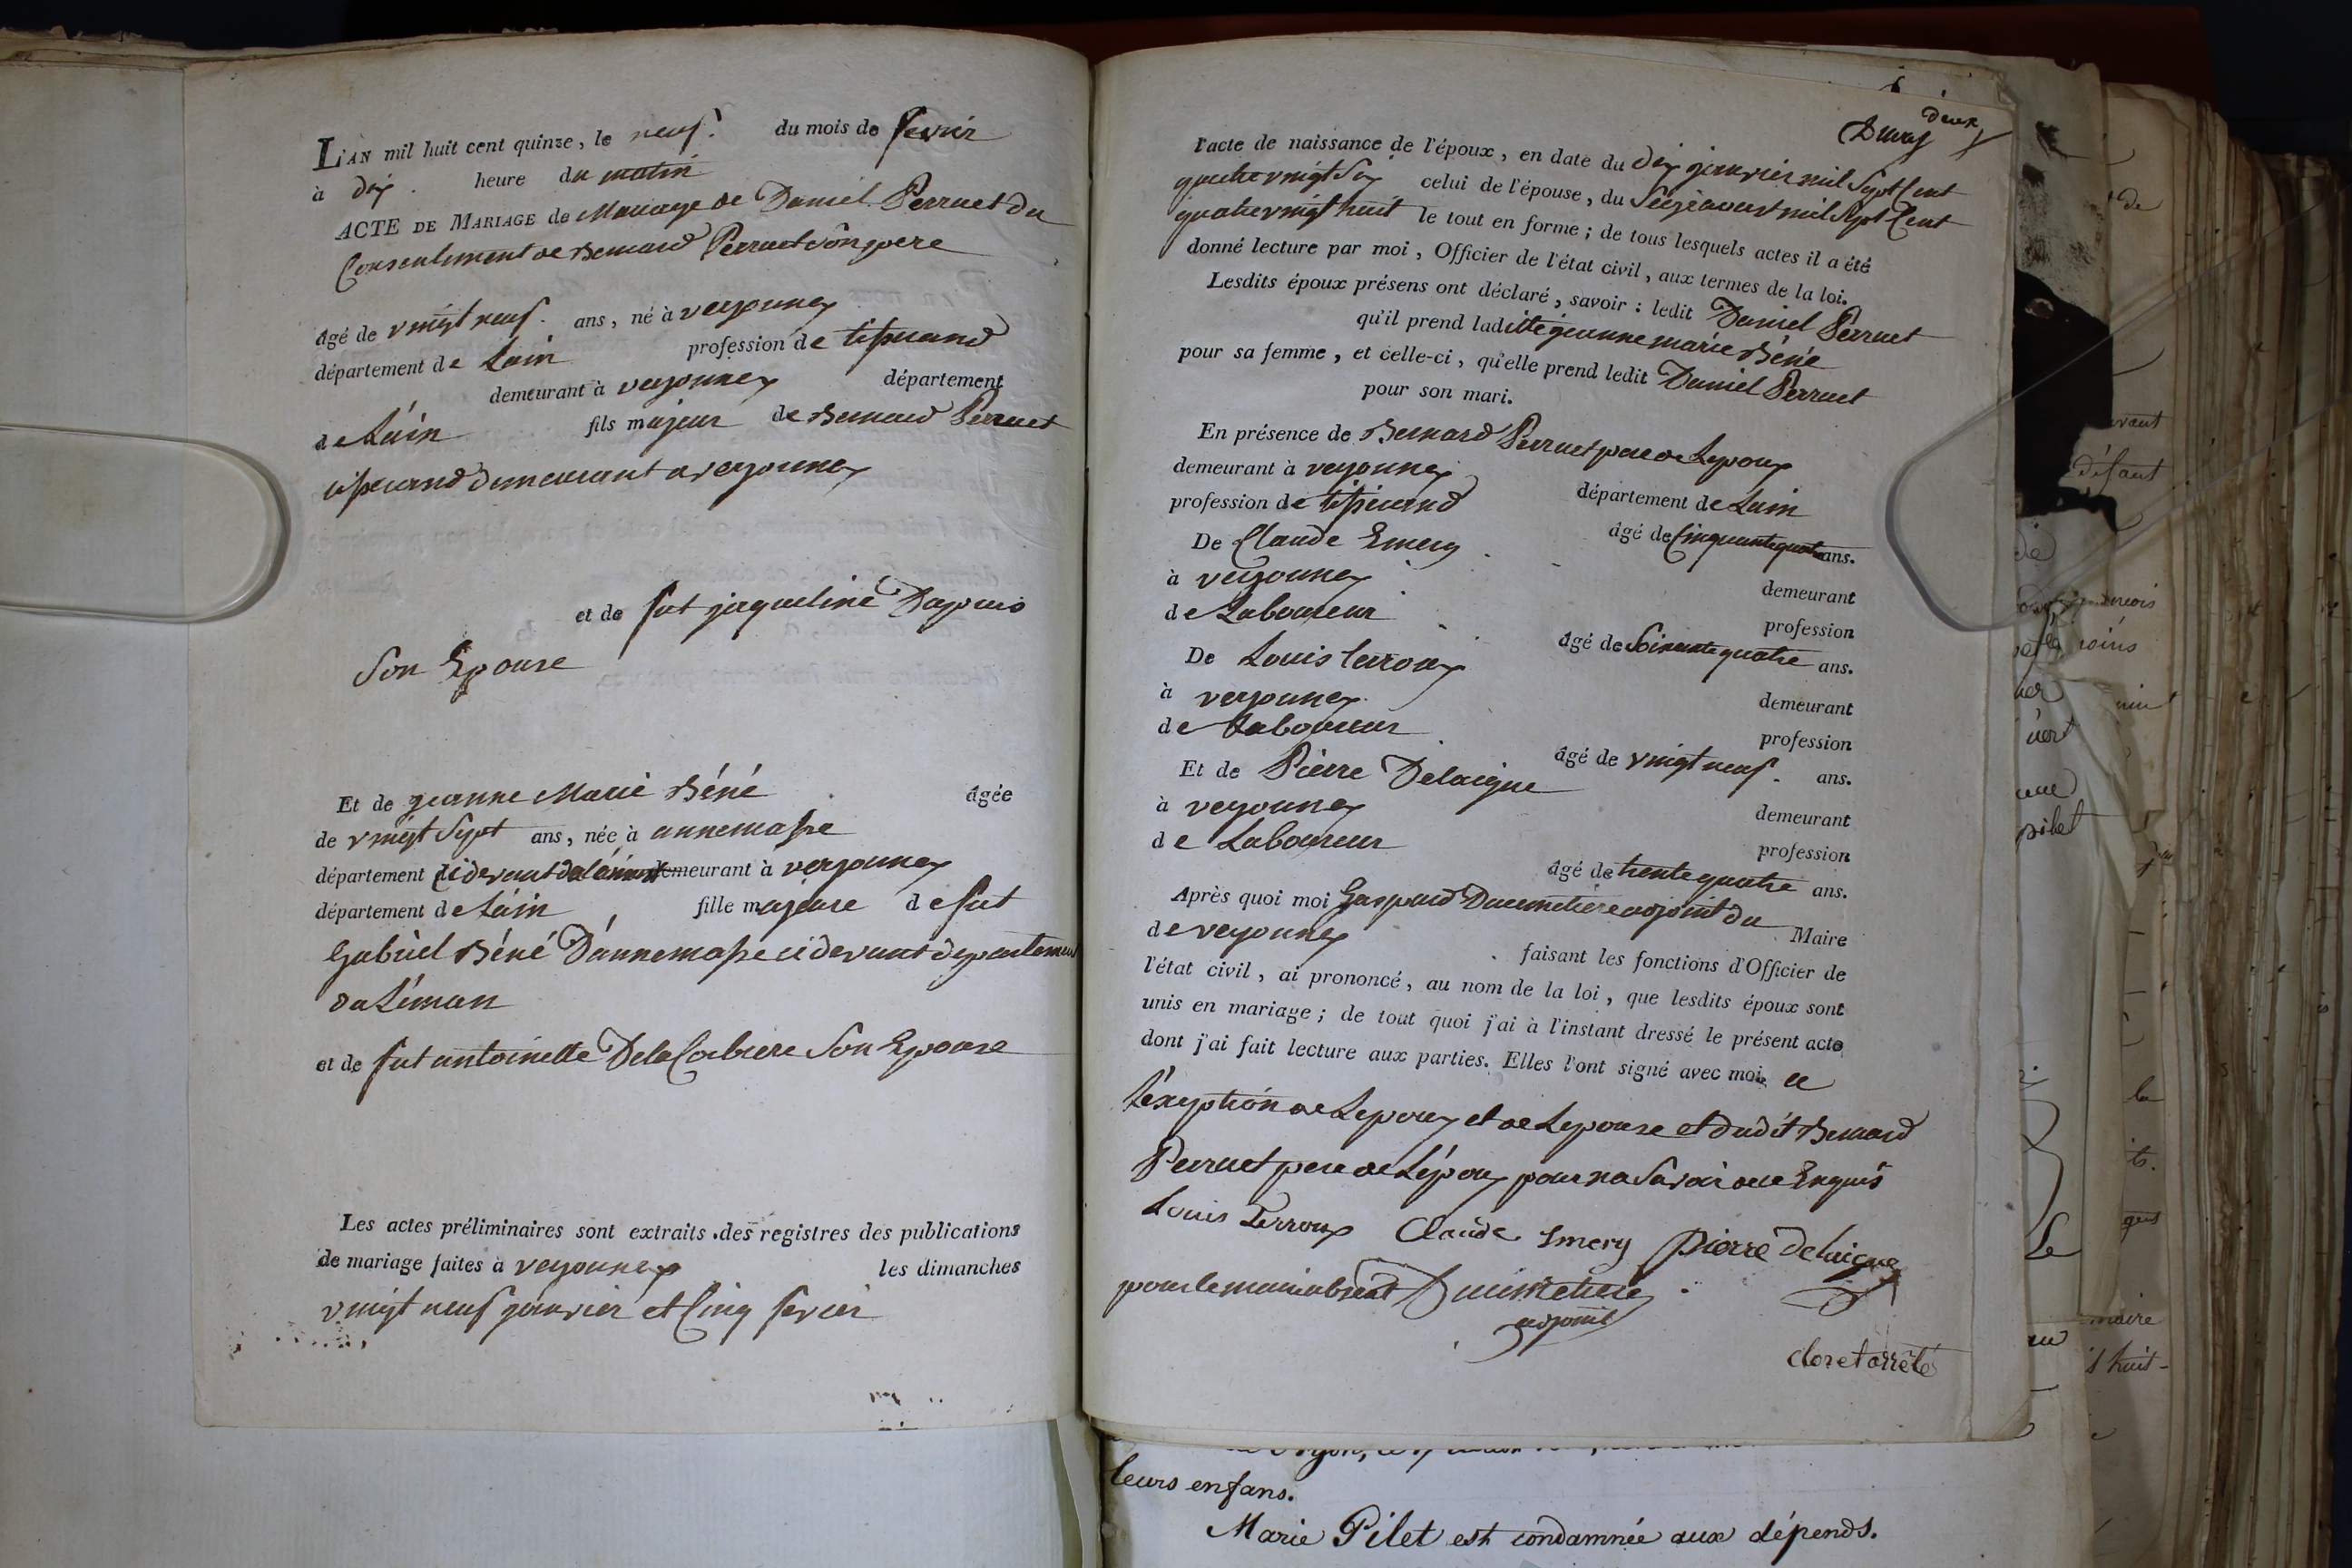 L'AN mil huit cent quinze, le neuf. du mois de fevrir
à dix. heure du matin
ACTE DE MARIAGE de Mariage de Daniel Perruet du
Consentement de Bernard Perruet son pere
âgé de vingt neuf. ans, né à versonnex
département de Lain profession de tisserand
demeurant à versonnex département
de Láin fils majeur de Bernard Perruet
tisserand demeurant a versonnex
et de fut jaqueline Dapuis
Son Epouse
Et de jeanne Marie Béné âgée
de vingt Sept ans, née à annemasse
département cidevant du léman demeurant à versonnex
département de Láin fille majeure de fut
Gabriel Béné D'annemasse cidevant departement
du Léman
et de fut antoinette Dela Corbiere Son Epouse
Les actes préliminaires sont extraits des registres des publications
de mariage faites à versonnex les dimanches
vingt neuf janvier et Cinq fevrier
deux
l'acte de naissance de l'époux, en date du dix janvier mil Sept Cent
quatre vingt Six celui de l'épouse, du Seize aoust mil Sept Cent
quatre vingt huit le tout en forme; de tous lesquels actes il a été
donné lecture par moi, Officier de l'état civil, aux termes de la loi.
Lesdits époux présens ont déclaré, savoir: ledit Daniel Perruet
qu'il prend ladite jeanne marie Béné
pour sa femme, et celle-ci, qu'elle prend ledit Daniel Perruet
pour son mari.
En présence de Bernard Perruet pere de Lepoux
demeurant à versonnex département de Lain
profession de tisserand âgé de Cinquante quatre ans.
De Claude Emery demeurant
à versonnex profession
de Laboureur âgé de Soixante quatre ans.
De Louis Perroux demeurant
à versonnex profession
de Laboureur âgé de vingt neuf. ans.
Et de Pierre Delaigue demeurant
à versonnex profession
de Laboureur âgé de trente quatre ans.
Après quoi moi Gaspard Ducimetiere adjoint du Maire
de versonnex faisant les fonctions d'Officier de
l'état civil, ai prononcé, au nom de la loi, que lesdits époux sont
unis en mariage; de tout quoi j'ai à l'instant dressé le présent acte
dont j'ai fait lecture aux parties. Elles l'ont signé avec moi, a
Léxeption de Lepoux et de Lepouse et dudit Bernard
Perruet pere de Lépoux pour na Savoir de ce Enquis
Louis Perroux Claude Emery Pierre delaigue
pour le maire absent Ducimetiere
adjoint
clos et arrêté
leurs enfans.
Marie Pilet est condamnée aux dépends.